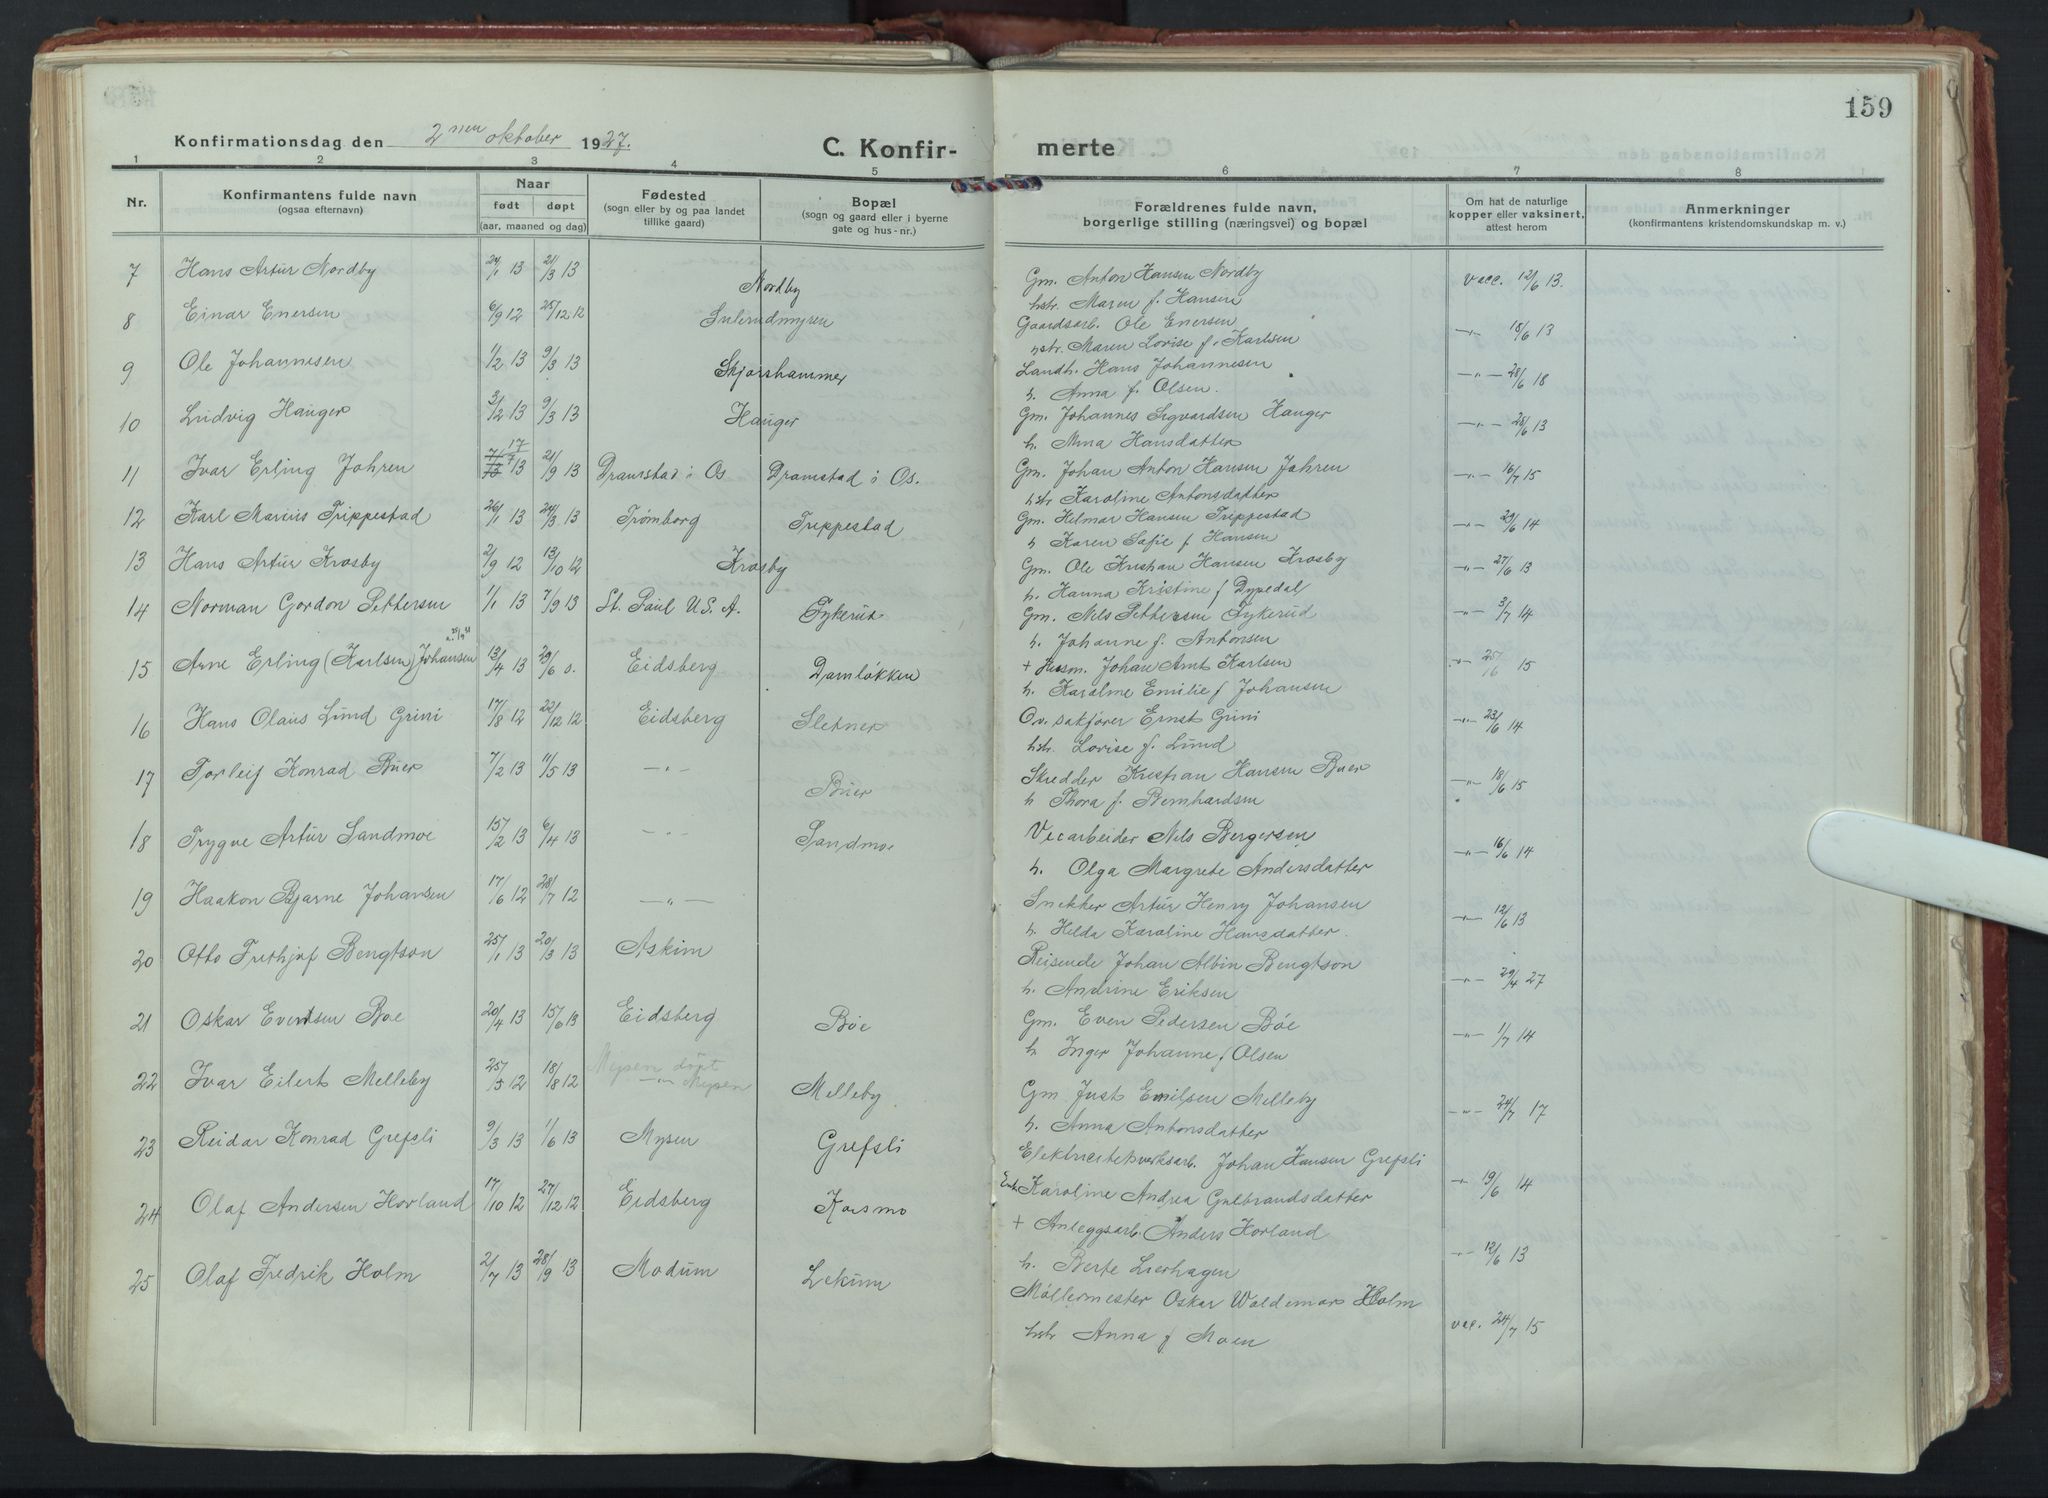 159
Konfirmationsdag den 2nen oktober 1927. C. Konfir- merte
1 2 3 4 5 6 7 8
Nr. Konfirmantens fulde navn (ogsaa efternavn) Naar født døpt (aar, maaned og dag) Fødested (sogn eller by og paa landet tillike gaard) Bopæl (sogn og gaard eller i byerne gate og hus-nr.) Forældrenes fulde navn, borgerlige stilling (næringsvei) og bopæl Om hat de naturlige kopper eller vaksinert, attest herom Anmerkninger (konfirmantens kristendomskundskap m. v.)
7 Hans Artur Nordby 24/1 13 21/3 13 Nordby Gm. Anton Hansen Nordby vacc. 12/6 13.
hstr. Maren f. Hansen
8 Einar Enersen 6/9 12 25/12 12 Sulerudmyren Gaardsarb. Ole Enersen -"- 18/6 13
hstr. Maren Lovise f. Karlsen
9 Ole Johannesen 1/2 13 9/3 13 Skjørshammer Landh. Hans Johannesen -"- 28/6 18
h. Anna f. Olsen.
10 Ludvig Hauger 3/2 13 9/3 13 Hauger Gm. Johannes Sigvardsen Hauger -"- 28/6 13
h. Anna Hansdatter
11 Ivar Erling Jahren 17/7 13 21/9 13 Dramstad i Os Dramstad i Os. Gm. Johan Anton Hansen Jahren -"- 16/7 15
hstr Karoline Antonsdatter
12 Karl Marius Trippestad 26/1 13 24/3 13 Trømborg Trippestad Gm. Hilmar Hansen Trippestad -"- 29/6 14
h Karen Sofie f Hansen
13 Hans Artur Krosby 2/9 12 13/10 12 Krosby Gm. Ole Kristian Hansen Krosby -"- 27/6 13
h. Hanna Kristine f Dypedal
14 Norman Gordon Pettersen 1/1 13 7/9 13 St. Paul U.S.A. Tykerud Gm. Nels Pettersen Tykerud -"- 3/7 14
h. Johanne f. Antonsen
15 Arne Erling (Karlsen) Johansen 13/4 13 29/6 s. Eidsberg Damløkken + Husm. Johan Arnt Karlsen -"- 25/6 15
h. Karoline Emilie f Johansen
16 Hans Olaus Lund Grini 17/8 12 22/12 12 Eidsberg Sletner Ov.sakfører Ernst Grini -"- 23/6 14
hstr. Lovise f. Lund
17 Torleif Konrad Buer 7/2 13 11/5 13 -"- Buer Skredder Kristian Hansen Buer -"- 18/6 15
h Thora f. Bernhardsen
18 Trygve Artur Sandmoe 15/2 13 6/4 13 -"- Sandmoe Veiarbeider Nils Bergersen -"- 16/6 14
h. Olga Margrete Andersdatter
19 Haakon Bjarne Johansen 17/6 12 28/7 12 -"- Snekker Artur Henry Johansen -"- 12/6 13
h. Hilda Karoline Hansdatter.
20 Otto Frithjof Bengtson 25/1 13 20/3 13 Askim Reisende Johan Albin Bengtson -"- 29/4 27
h. Andrine Eriksen
21 Oskar Evensen Bøe 20/4 13 15/6 13 Eidsberg Bøe Gm. Even Pedersen Bøe -"- 1/7 14
h Inger Johanne f Olsen
22 Ivar Eilert Melleby 25/5 12 18/8 12 Mysen døpt -"- Mysen Melleby Gm Just Emilsen Melleby -"- 24/7 17
h. Anna Antonsdatter
23 Reidar Konrad Grefsli 9/3 13 1/6 13 Mysen Grefsli Elektricitetsverksarb. Johan Hansen Grefsli -"- 19/6 14
Karoline Andrea Gulbrandsdatter
24 Olaf Andersen Horland 17/10 12 27/12 12 Eidsberg Korsmo + Anleggsarb. Anders Horland -"- 12/6 13
h. Berte Lierhagen
25 Olaf Fredrik Holm 2/7 13 28/9 13 Modum Lekum Møllermester Oskar Waldemar Holm vac. 24/7 15
hstr Anna f Moen